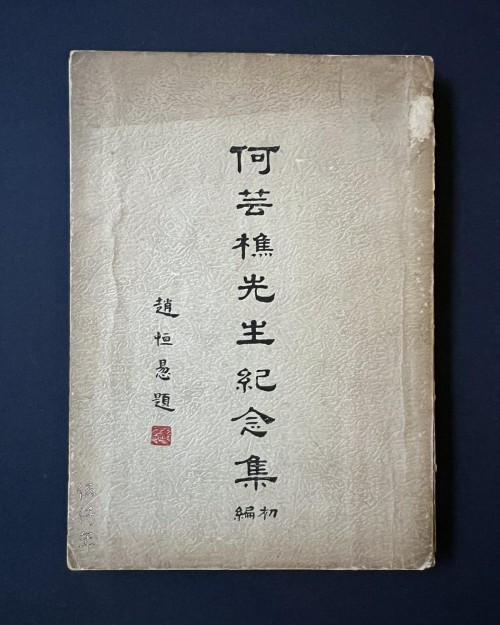 何芸樵先生紀念集
初編
趙恒惕題